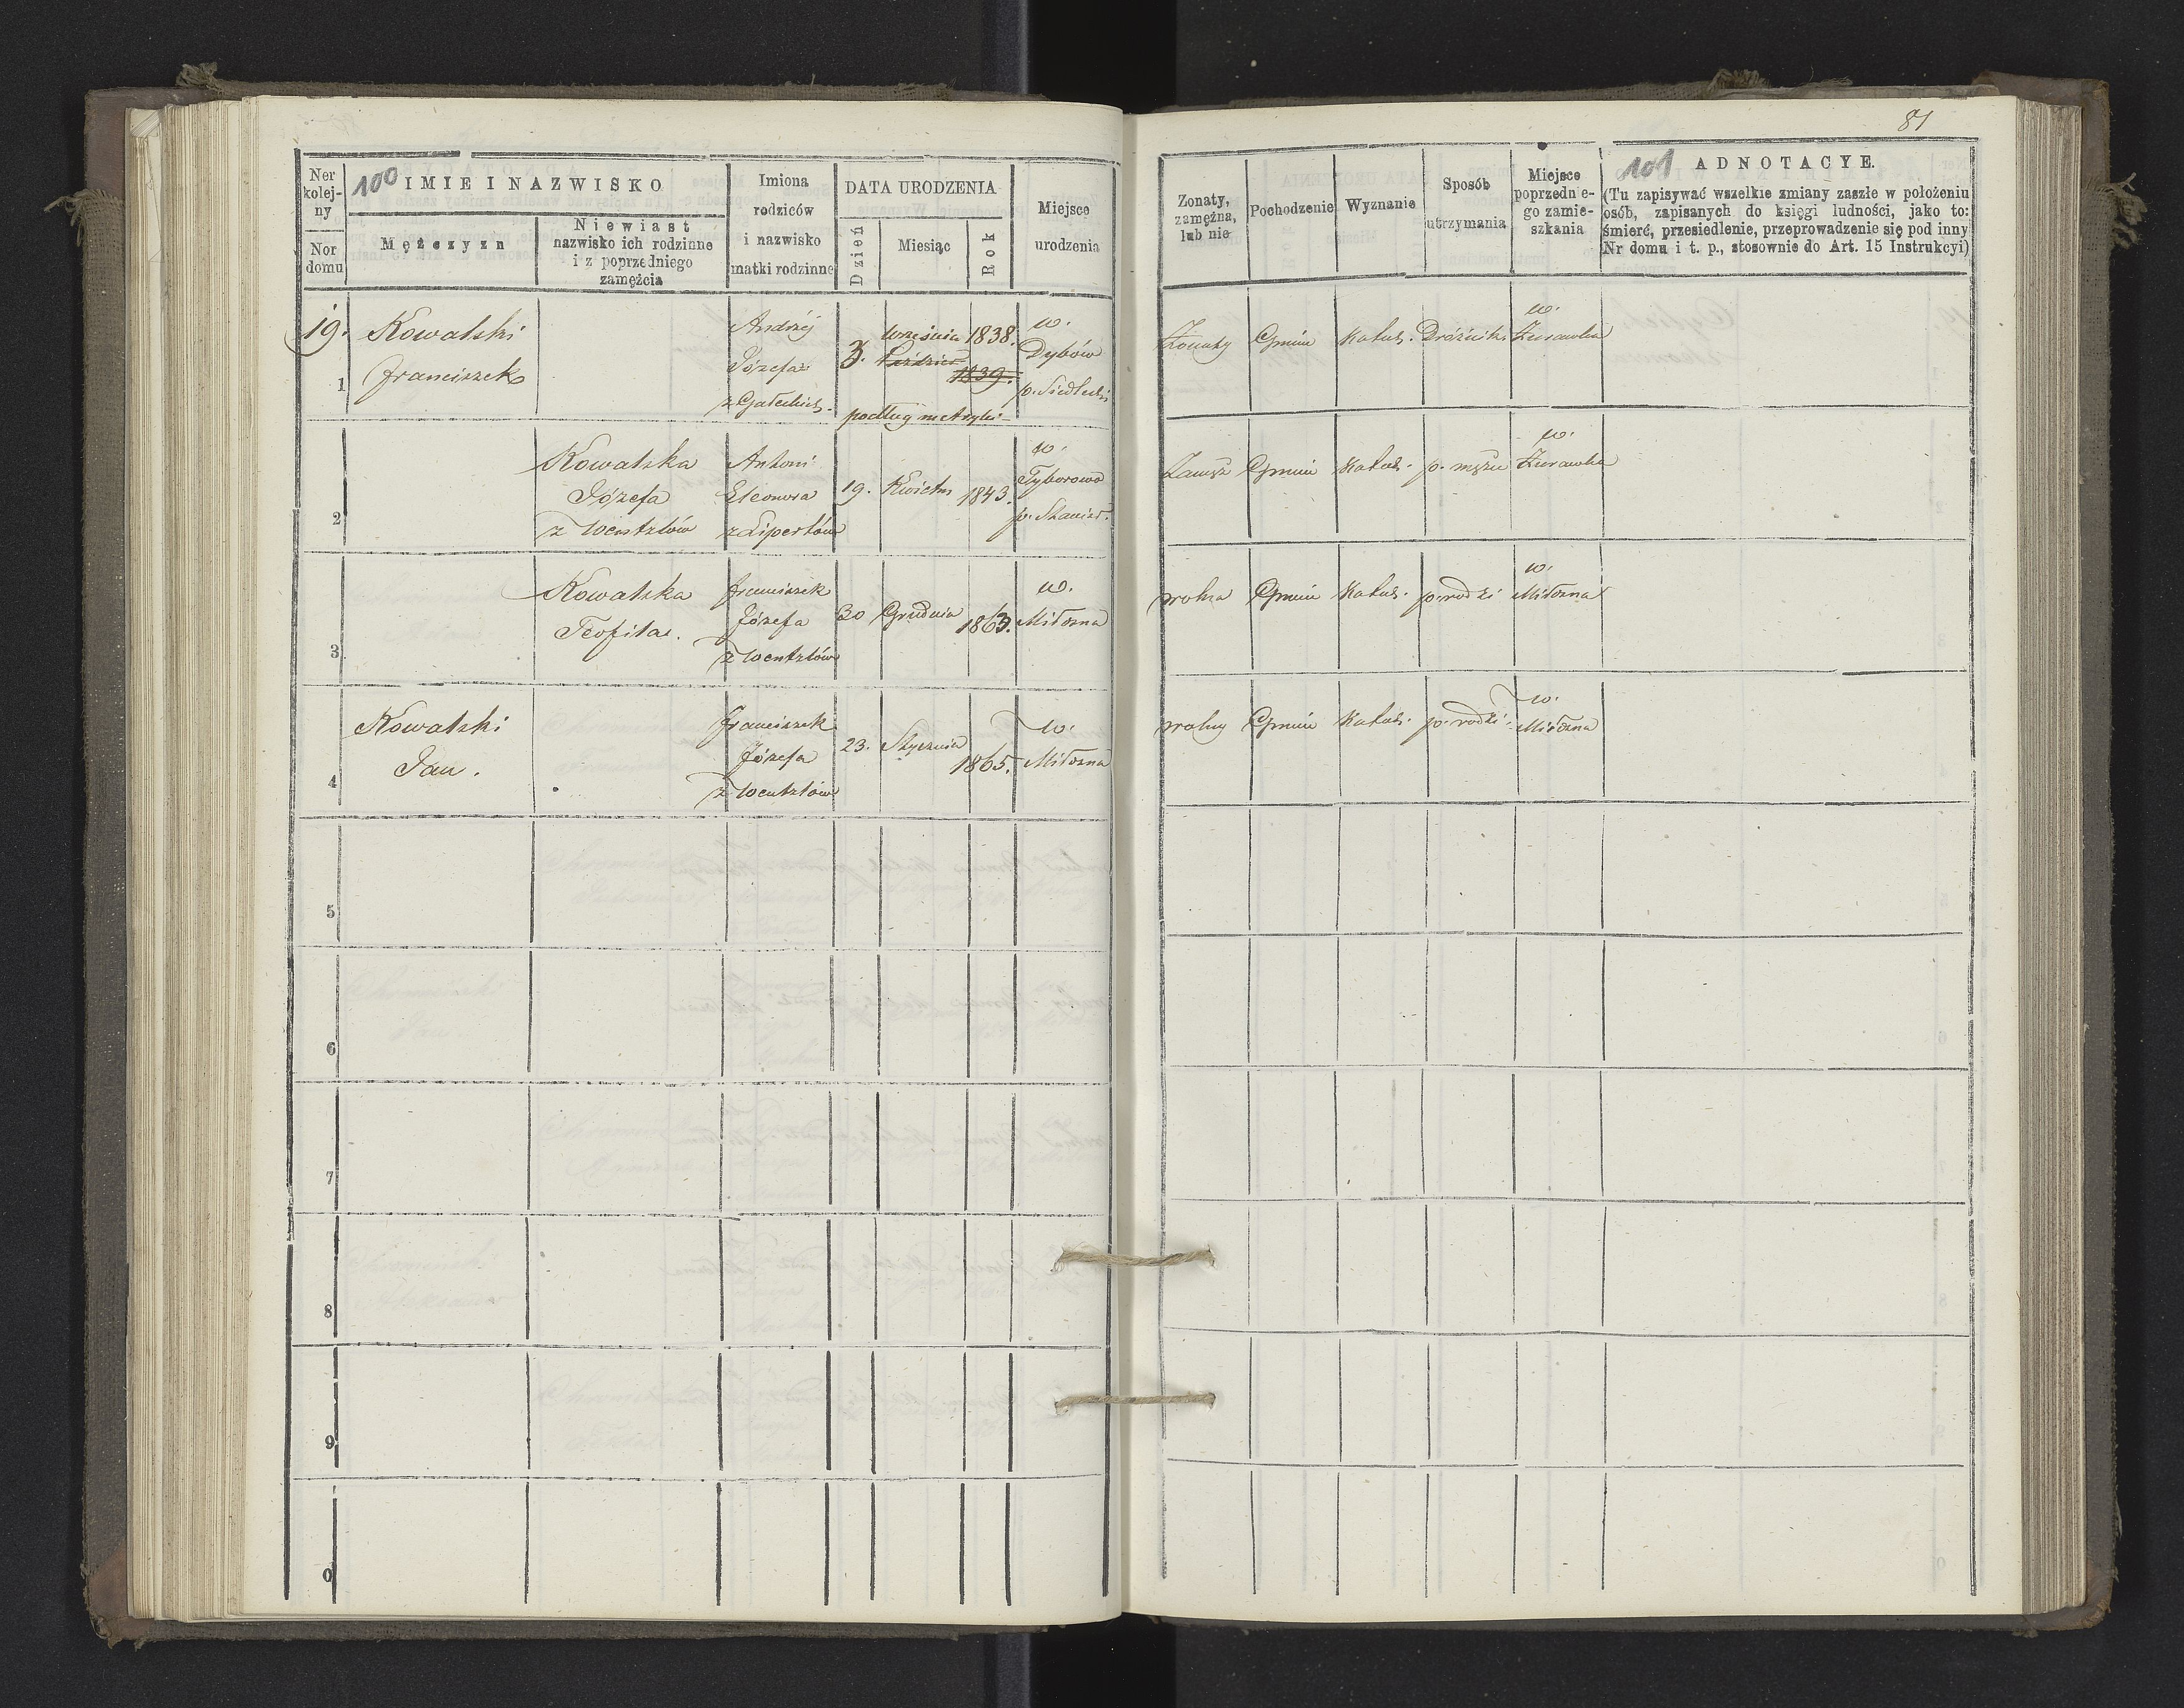 81
Ner
kolej-
ny
Nor
domu
100 IMIE I NAZWISKO
Mężczyzn
Niewiast
nazwisko ich rodzinne
i z poprzedniego
zamężcia
Imiona
rodziców
i nazwisko
matki rodzinne
DATA URODZENIA
Dzień
Miesiąc
Rok
Miejsce
urodzenia
Zonaty,
zamężna,
lub nie
Pochodzenie
Wyznanie
Sposób
utrzymania
Miejsce
poprzednie-
go zamie-
szkania
101 ADNOTACYE.
(Tu zapisywać wszelkie zmiany zaszłe w położeniu
osób, zapisanych do księgi ludności, jako to:
śmierć, przesiedlenie, przeprowadzenie się pod inny
Nr domu i t. p., stosownie do Art. 15 Instrukcyi)
19.
1
Kowalski
Franciszek
Andrzéj
Józefa
z Gałeckich.
3.
Września 1838.
Paździer
1839.
podług metryki
w.
Dybów
p. Siedlecki
Żonaty
Gmin
Katol.
Dróżnik
w.
Żurawka
2
Kowalska
Józefa
z Wentzlów
Antoni
Eleonora
z Lipertów
19.
Kwietn
1843.
w.
Tyborowo
p. Stanisł.
Zamęż
Gmin
Katol.
p. mężu
w.
Żurawka
3
Kowalska
Teofila.
Franciszek
Józefa
z Wentzlów
30
Grudnia
1863.
w.
Miłosna
wolna
Gmin
Katol.
p. rodzi
w.
Miłosna
4
Kowalski
Jan.
Franciszek
Józefa
z Wentzlów
23.
Stycznia
1865.
w.
Miłosna
wolny
Gmin
Katol.
p. rodzi
w.
Miłosna
5
6
7
8
9
0